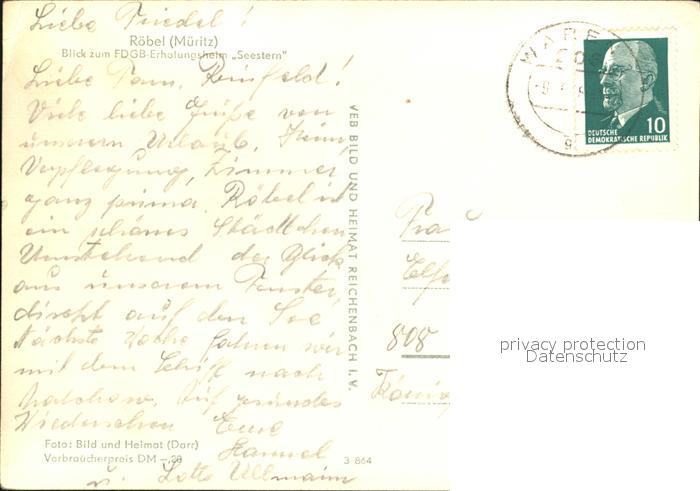 Liebe Friedel!
Röbel (Müritz)
Blick zum FDGB-Erholungsheim „Seestern"
Liebe Fam. Reinfeld!
Viele liebe Grüße von
unserem Urlaub. Heim,
Verpflegung, Zimmer
ganz prima. Röbel ist
ein schönes Städtchen
Umstehend der Blick
aus unserem Fenster,
direkt auf den See
Nächste Woche fahren wir
mit dem Schiff nach
Malchow. Auf gesundes
Wiedersehen Eure
Hannel
u. Lotte Ullmann
Foto: Bild und Heimat (Darr)
Verbraucherpreis DM -,20
3 864
VEB BILD UND HEIMAT REICHENBACH I. V.
WARE
10
DEUTSCHE
DEMOKRATISCHE REPUBLIK
Frau
808
privacy protection
Datenschutz